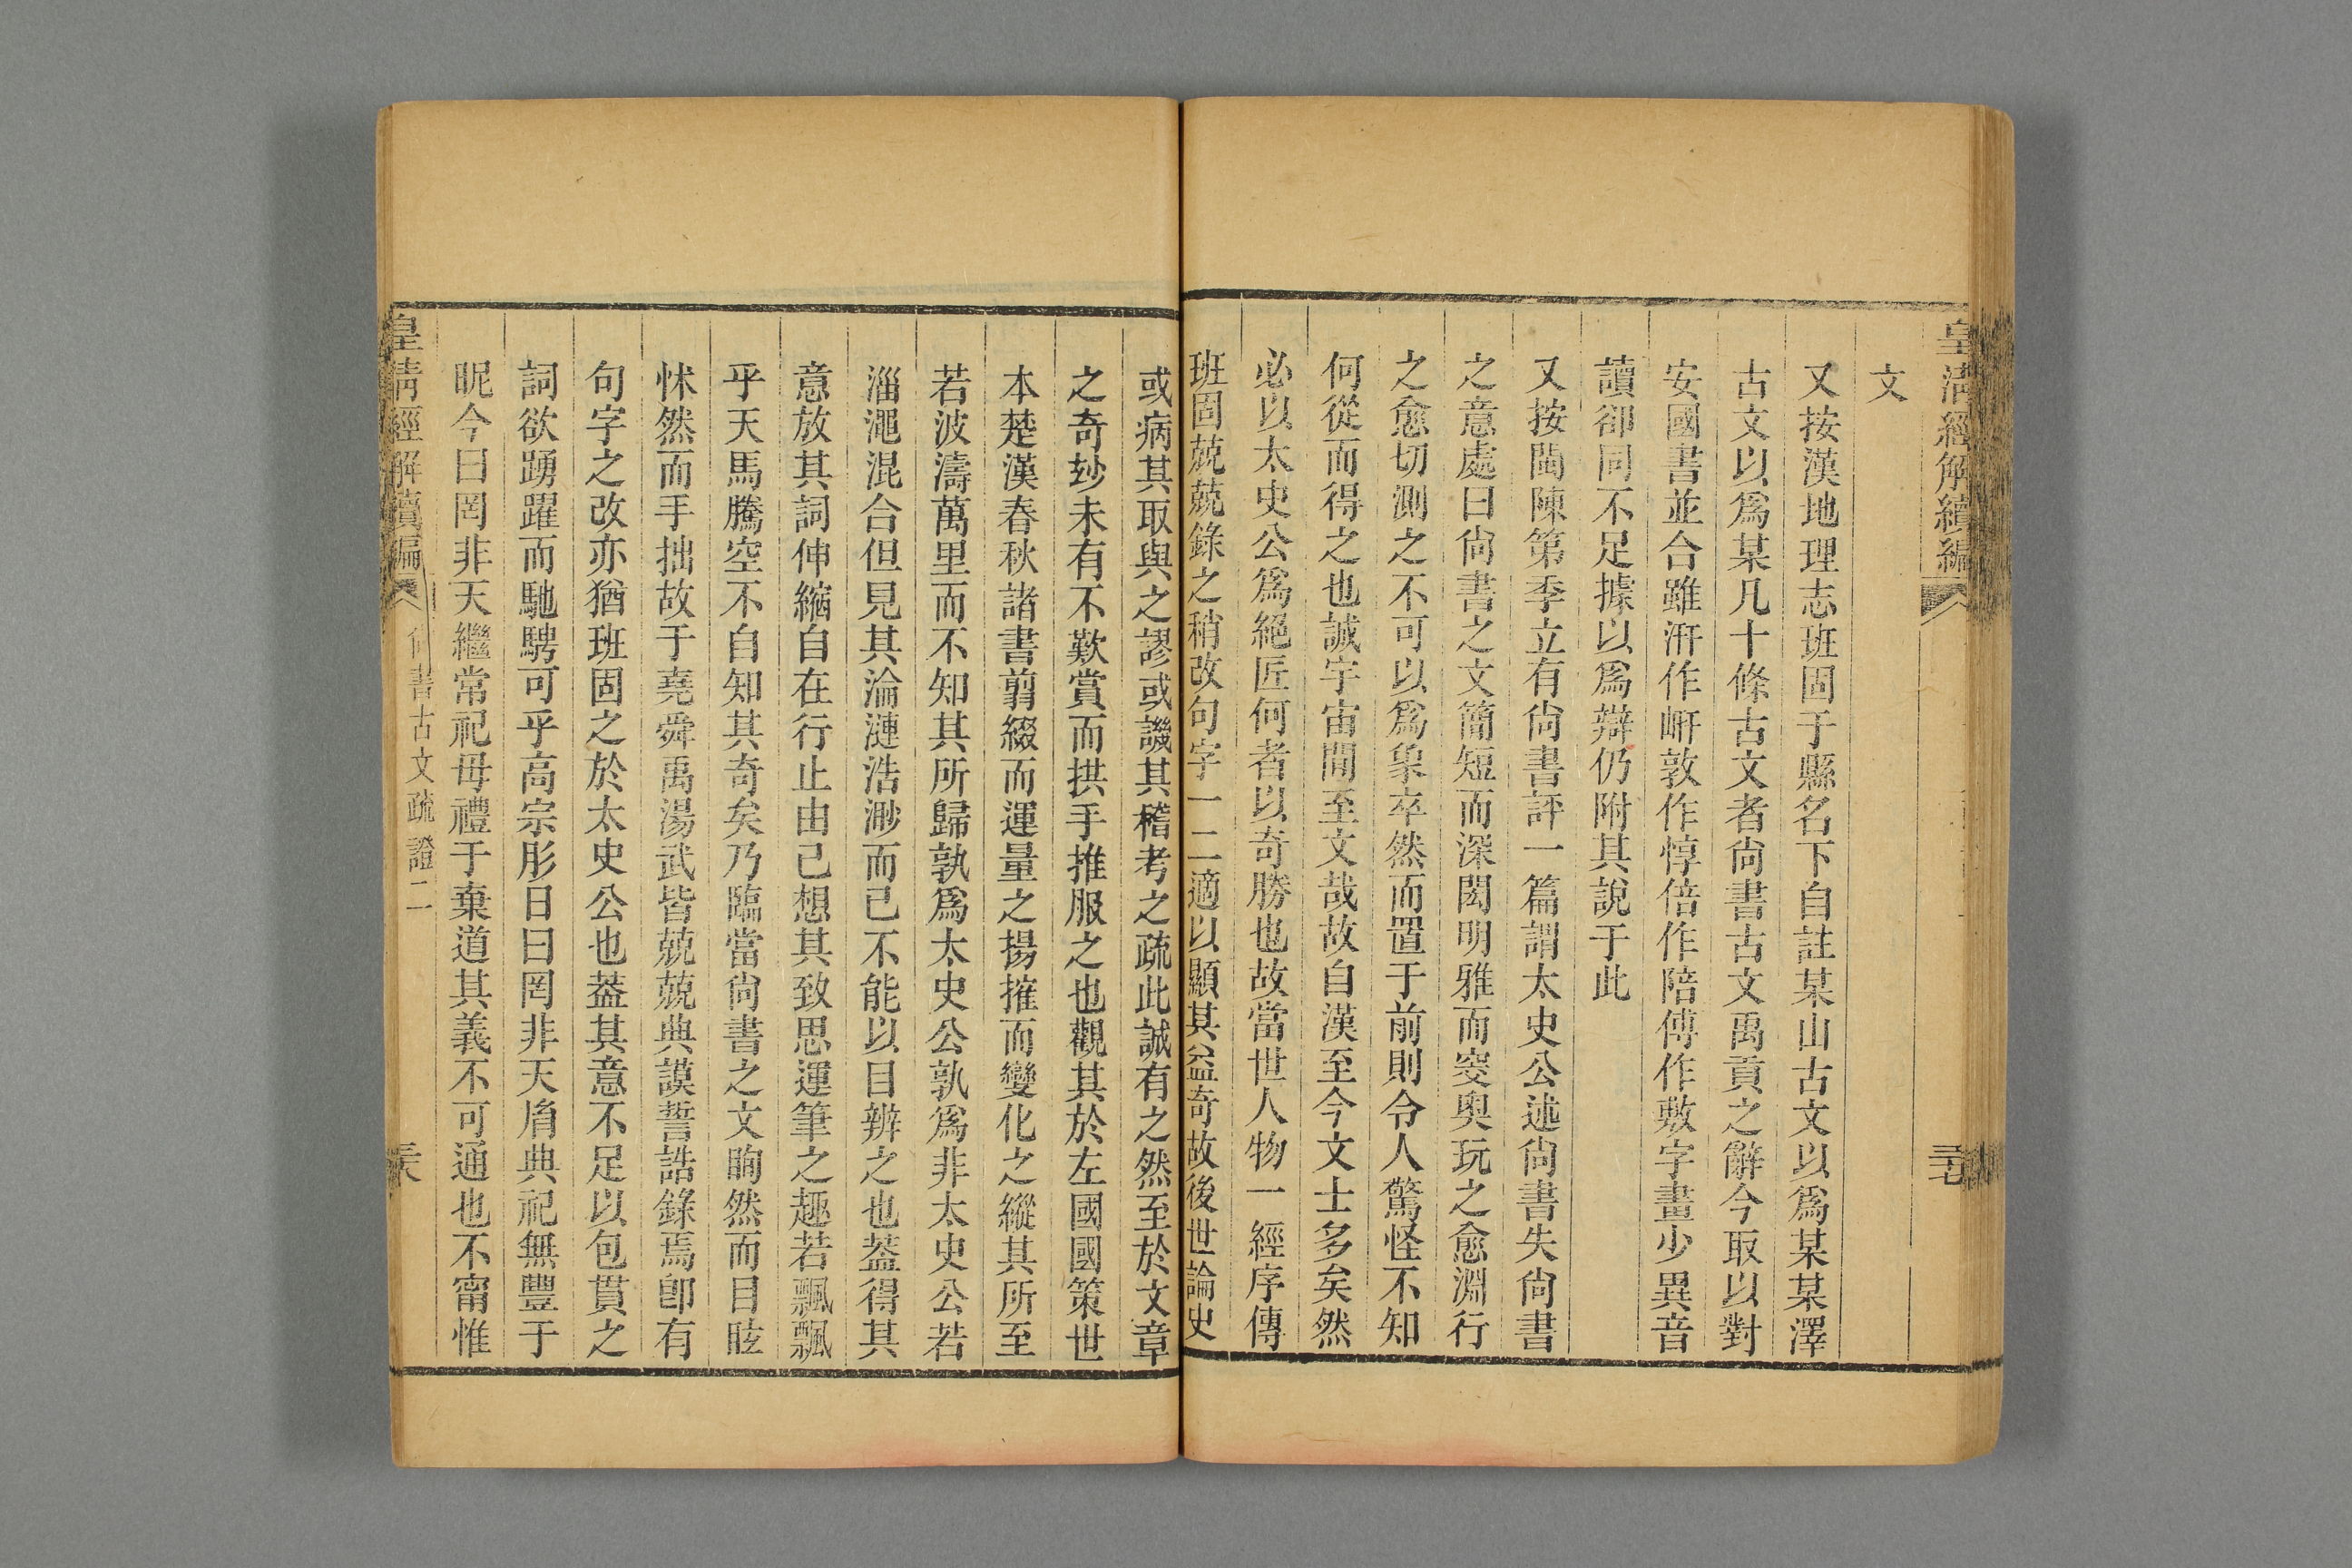 皇清經解續編
文
又按漢地理志班固于縣名下自註某山古文以爲某某澤
古文以爲某凡十條古文者尙書古文禹貢之辭今取以對
安國書並合雖汧作岍敦作惇倍作陪傅作敷字畫少異音
讀卻同不足據以爲辯仍附其說于此
又按閩陳第季立有尙書評一篇謂太史公述尙書失尙書
之意處曰尙書之文簡短而深閎明雅而窔奧玩之愈淵行
之愈切測之不可以爲象卒然而置于前則令人驚怪不知
何從而得之也誠宇宙閒至文哉故自漢至今文士多矣然
必以太史公爲絕匠何者以奇勝也故當世人物一經序傳
班固兢兢錄之稍改句字一二適以顯其益奇故後世論史
或病其取與之謬或譏其稽考之疏此誠有之然至於文章
之奇玅未有不歎賞而拱手推服之也觀其於左國國策世
本楚漢春秋諸書翦綴而運量之揚搉而變化之縱其所至
若波濤萬里而不知其所歸孰爲太史公孰爲非太史公若
淄澠混合但見其淪漣浩渺而已不能以目辨之也葢得其
意放其詞伸縮自在行止由己想其致思運筆之趣若飄飄
乎天馬騰空不自知其奇矣乃臨當尙書之文眴然而目眩
怵然而手拙故于堯舜禹湯武皆兢兢典謨誓誥錄焉卽有
句字之改亦猶班固之於太史公也葢其意不足以包貫之
詞欲踴躍而馳騁可乎高宗肜日曰罔非天胤典祀無豐于
昵今曰罔非天繼常祀毋禮于棄道其義不可通也不甯惟
皇清經解續編
尙書古文疏證二